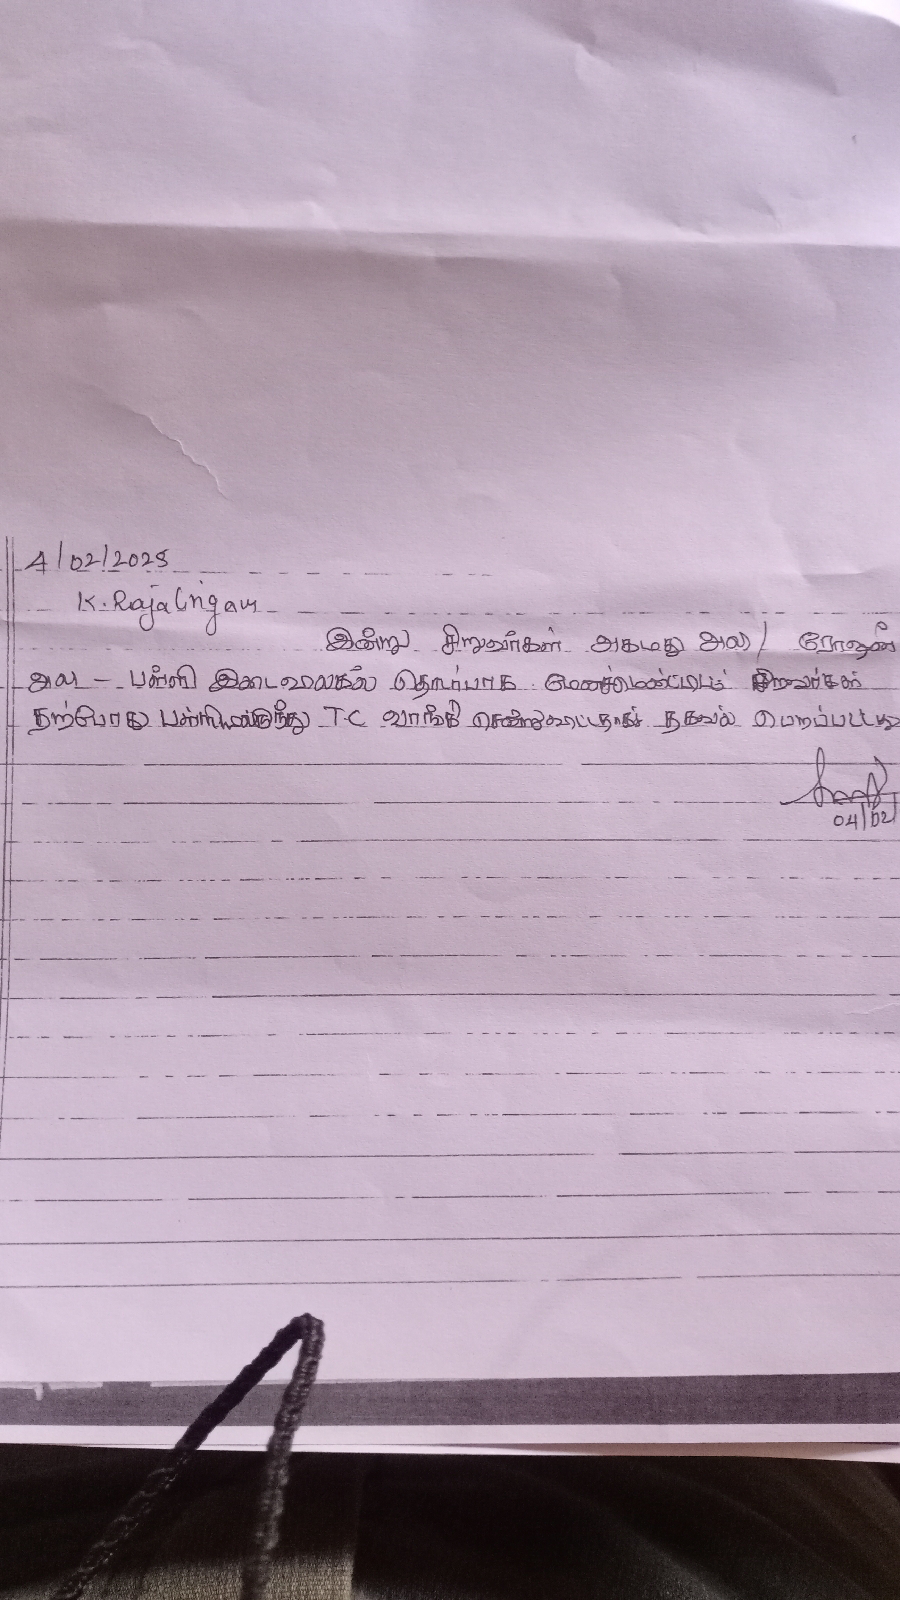 4/02/2025
K. Rajalingam
இன்று சிறுவர்கள் அகமது அலி / ரோஷன்
அலி - பள்ளி இடைவிலகல் தொடர்பாக சிறுவர்கள்
தற்போது பள்ளியிலிருந்து T.C வாங்கி சென்றுவிட்டதாக தகவல் பெறப்பட்டது
04/02/